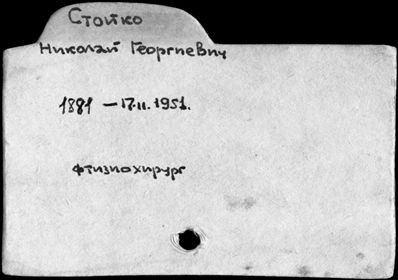 Стойко
Николай Георгиевич
1881 — 17.II.1951.
фтизиохирург